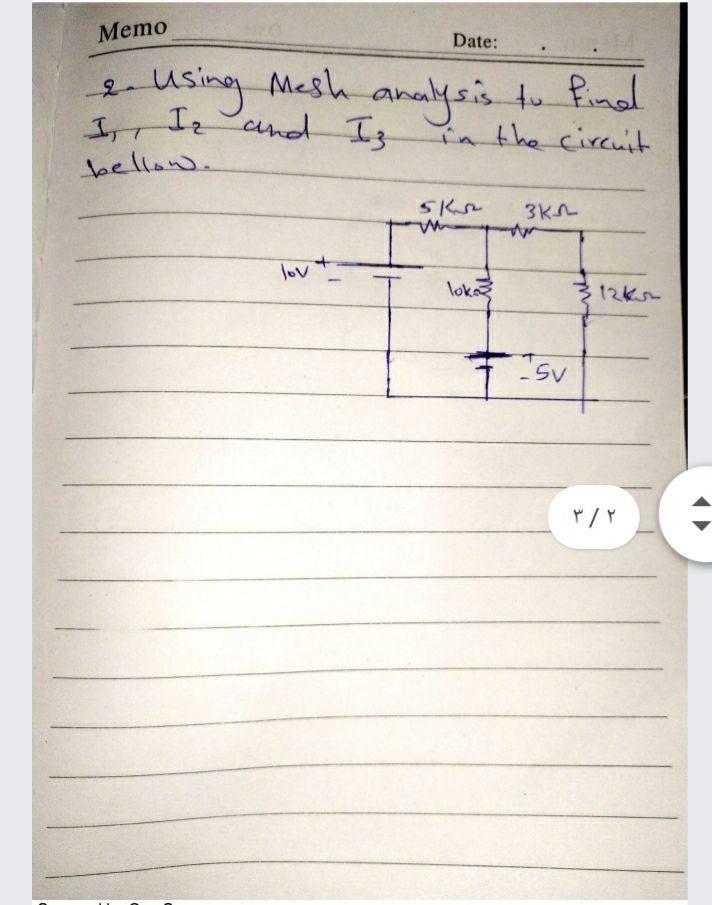 Memo
Date: . .
2. Using Mesh analysis to find
I1, I2 and I3 in the circuit
bellow.
5KΩ 3KΩ
10V + -
10kΩ
12KΩ
+ - 5V
٣ / ٢